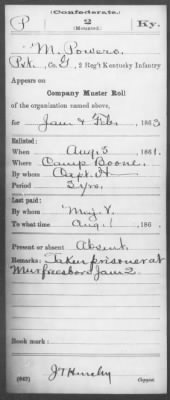 (Confederate.)
P 2 Ky.
(Mounted.)
M. Powers
Pvt., Co. G, 2 Reg't Kentucky Infantry
Appears on
Company Muster Roll
of the organization named above,
for Jan & Feb, 1863
Enlisted:
When Aug. 3, 1861.
Where Camp Boone.
By whom Capt.
Period 3 yrs.
Last paid:
By whom Maj.
To what time Aug. 1, 186 .
Present or absent Absent.
Remarks: Taken prisoner at
Murfreesboro Jan 2.
Book mark:
(642)
Copyist.